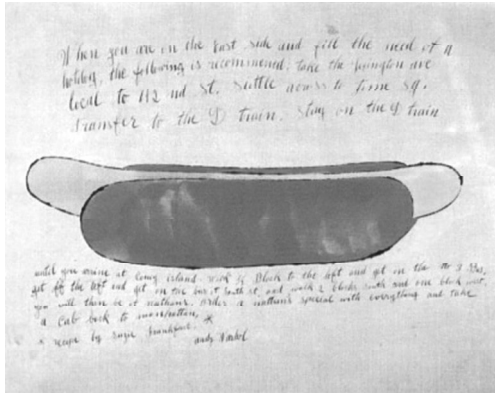 When you are on the East side and feel the need of a
hotdog, the following is recommend: take the Lexington ave
local to 42 nd St. Suttle across to time sq.
transfer to the D train. Stay on the D train
until you arrive at Coney island. walk Block to the left and get on the
get off the left and get on the bus at south st, and walk 2 blocks south and one block west.
you will then be at nathan's. Order a nathan's special with everything and take
a cab back to manhattan.
* recipe by Suzie Frankfurt.
andy Warhol